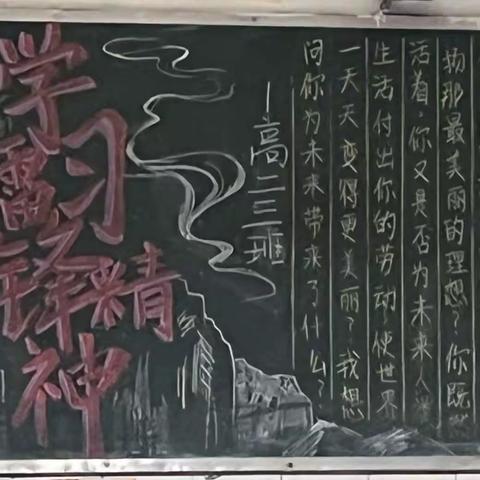 学习
雷锋精
神
—高二三班
物那最美丽的理想?你既
活着,你又是否为未来人类
生活付出你的劳动使世界
一天天变得更美丽?我想
问你为未来带来了什么?